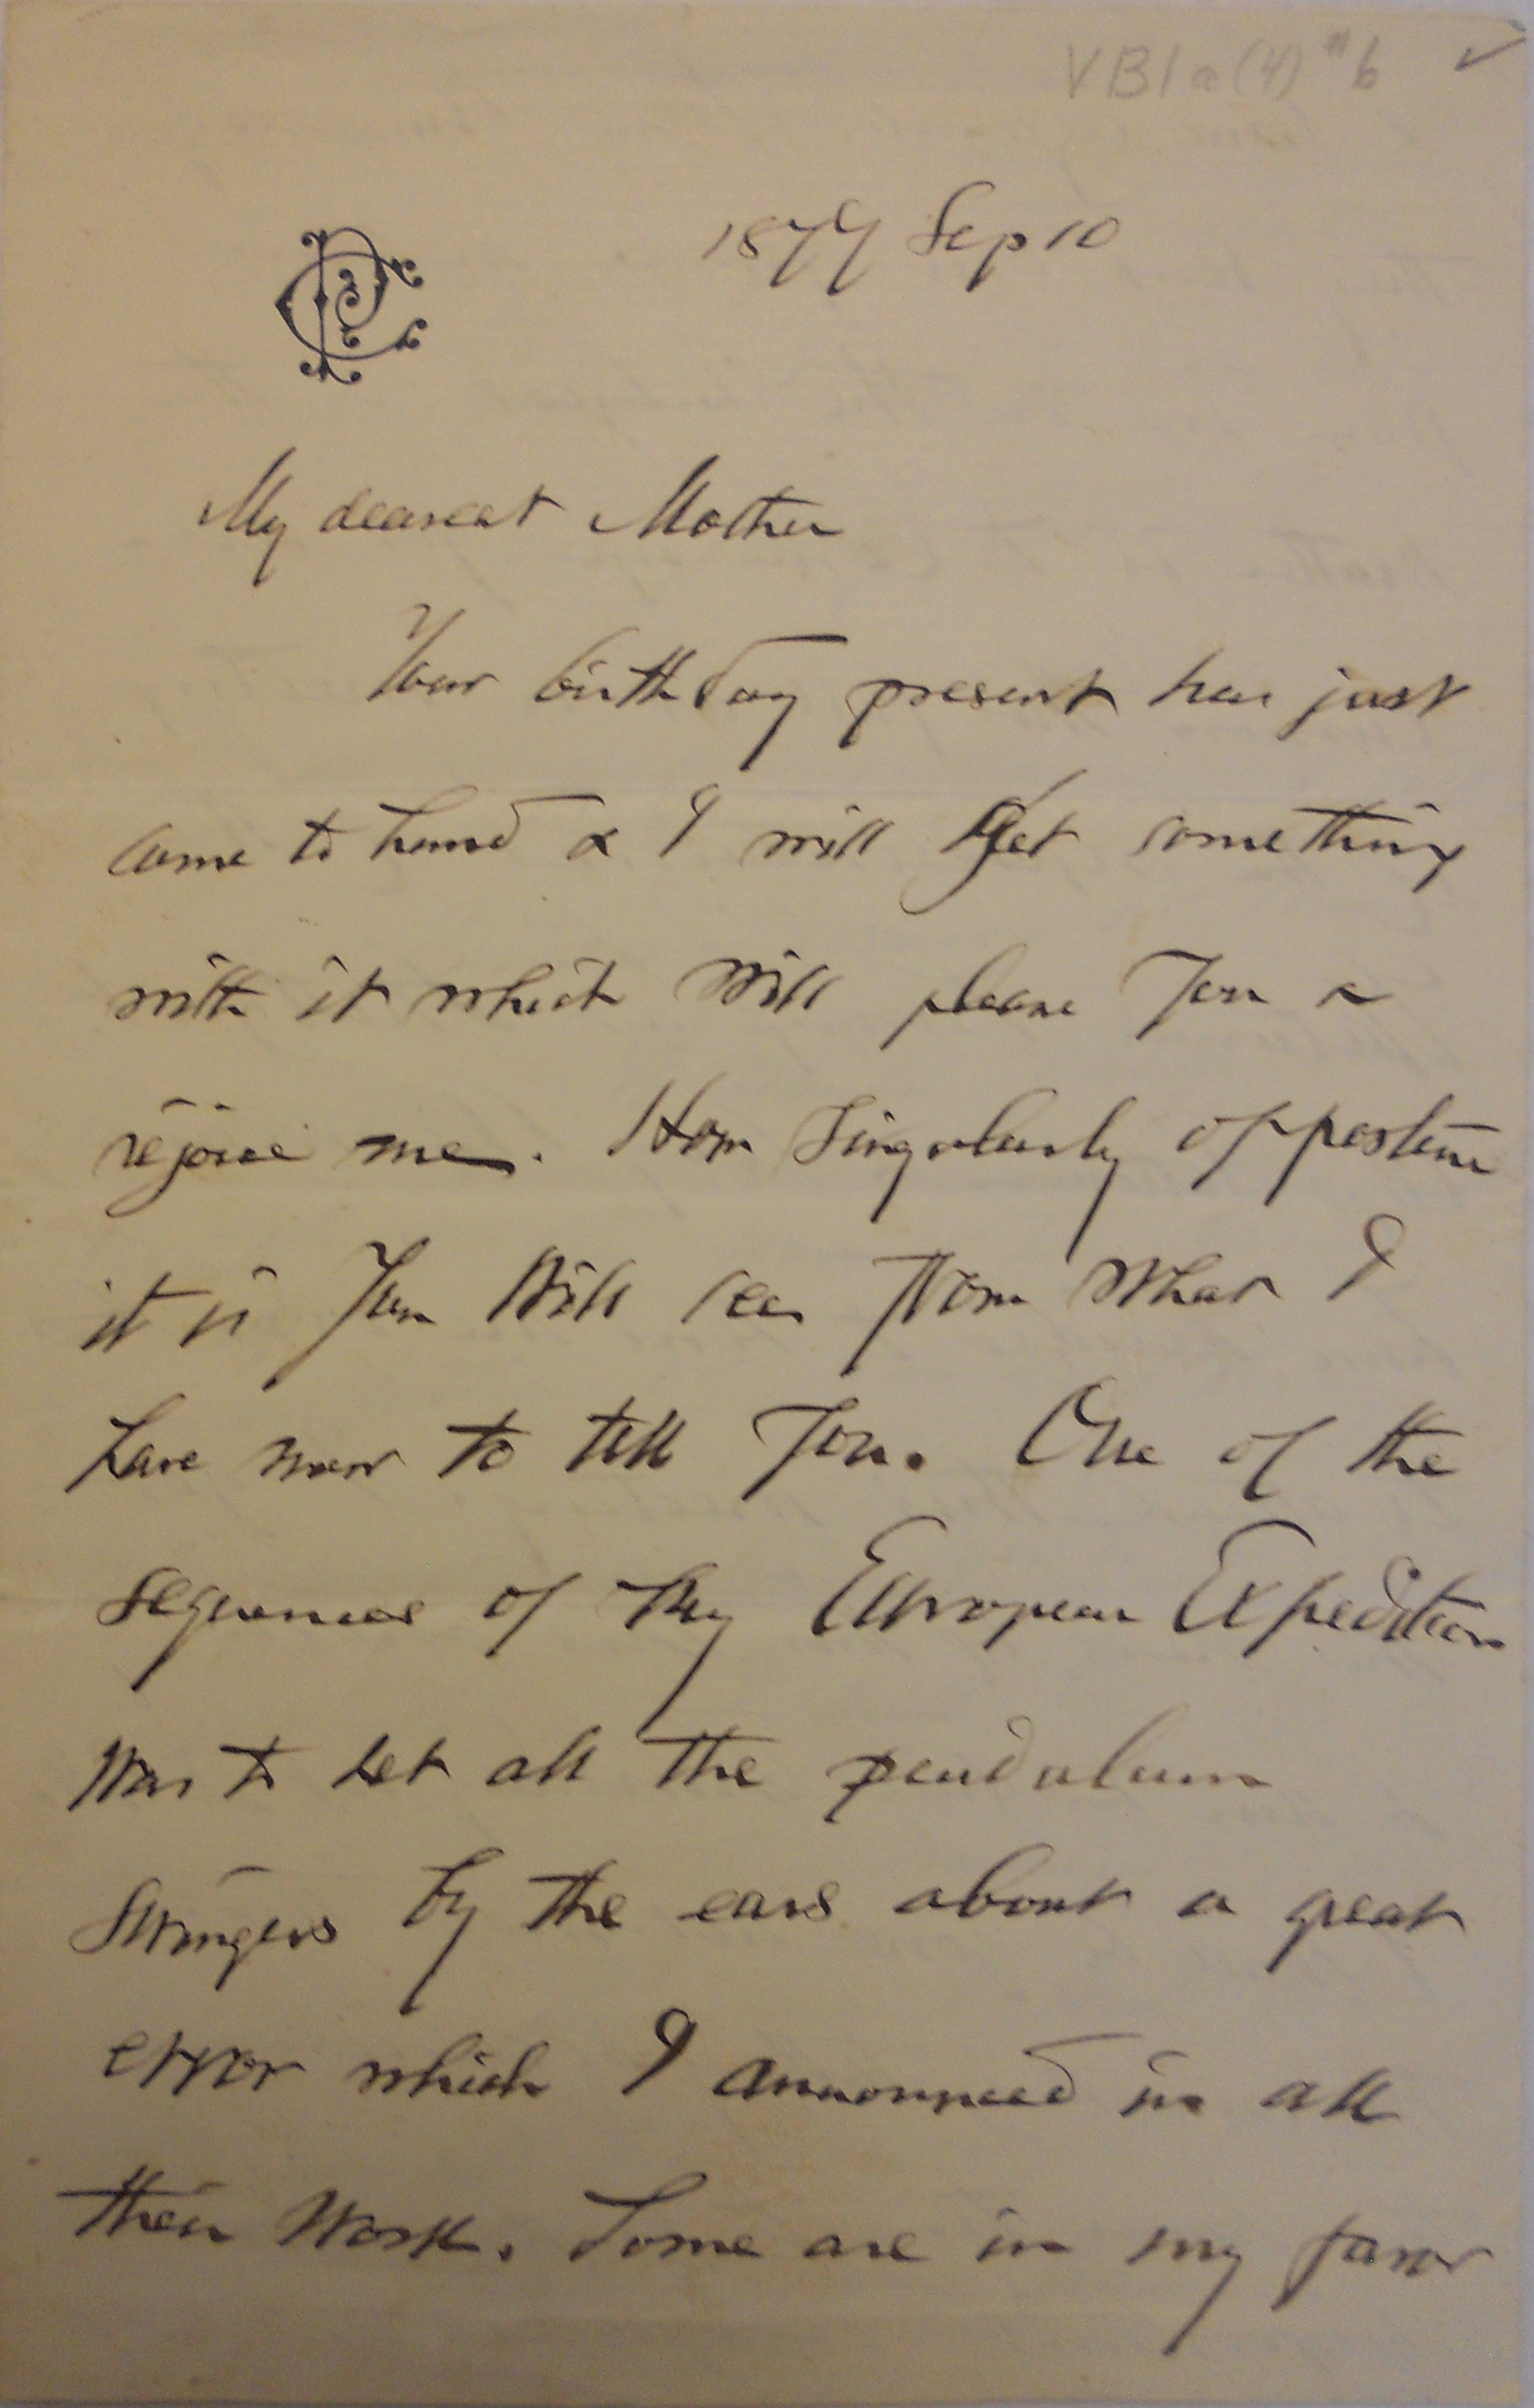 VB1a(4) #6 ✓
1877 Sep 10
CP
My dearest Mother
Your birthday present has just
come to hand & I will get something
with it which will please you &
rejoice me. How singularly opportune
it is you will see from what I
have now to tell you. One of the
sequences of my European Expedition
was to set all the pendulum
swingers by the ears about a great
error which I announced in all
their work. Some are in my favor